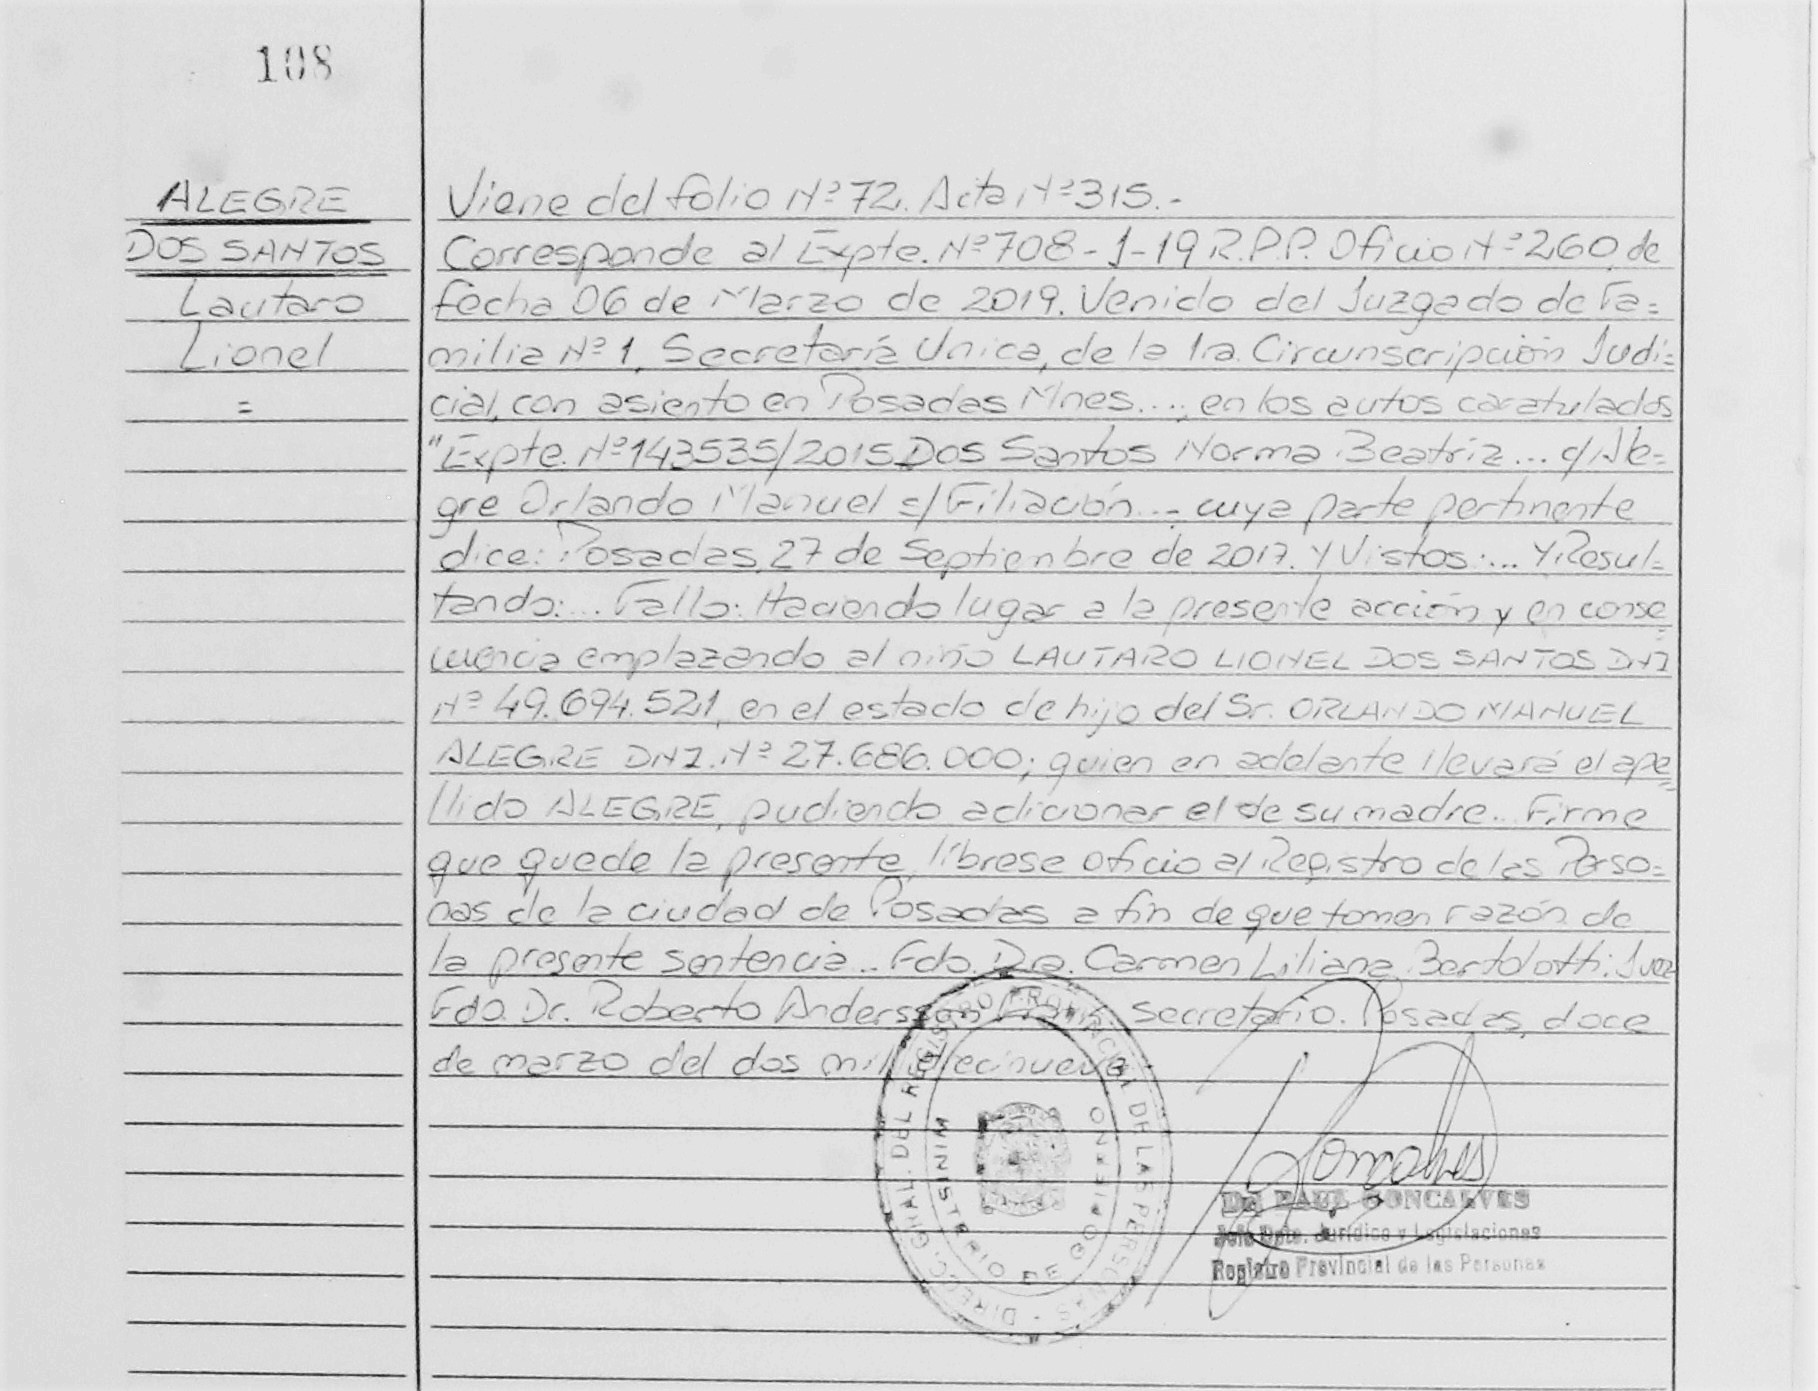 108
ALEGRE
DOS SANTOS
Lautaro
Lionel
=
Viene del folio Nº 72. Acta Nº 315.-
Corresponde al Expte. Nº 708-1-19 R.P.P. Oficio Nº 260 de
fecha 06 de Marzo de 2019. Venido del Juzgado de Fa=
milia Nº 1, Secretaría Unica, de la 1ra. Circunscripción Judi=
cial, con asiento en Posadas Mnes..., en los autos caratulados
"Expte. Nº 143535/2015 Dos Santos Norma Beatriz... c/ Ale=
gre Orlando Manuel s/ Filiación... cuya parte pertinente
dice: Posadas, 27 de Septiembre de 2017. Y Vistos:... Y Resul=
tando:... Fallo: Haciendo lugar a la presente acción y en conse=
cuencia emplazando al niño LAUTARO LIONEL DOS SANTOS DNI
Nº 49.694.521, en el estado de hijo del Sr. ORLANDO MANUEL
ALEGRE DNI. Nº 27.686.000; quien en adelante llevará el ape=
llido ALEGRE, pudiendo adicionar el de su madre... Firme
que quede la presente, líbrese oficio al Registro de las Perso=
nas de la ciudad de Posadas a fin de que tomen razón de
la presente sentencia... Fdo. Dra. Carmen Liliana Bertolotti. Juez
Fdo. Dr. Roberto Andersson Secretario. Posadas, doce
de marzo del dos mil diecinueve
DIRECC. GRAL. DEL REGISTRO PROVINCIAL DE LAS PERSONAS -
MINISTERIO DE GOBIERNO
Goncalves
Dr. RAUL GONCALVES
Jefe Dpto. Jurídico y Legislaciones
Registro Provincial de las Personas